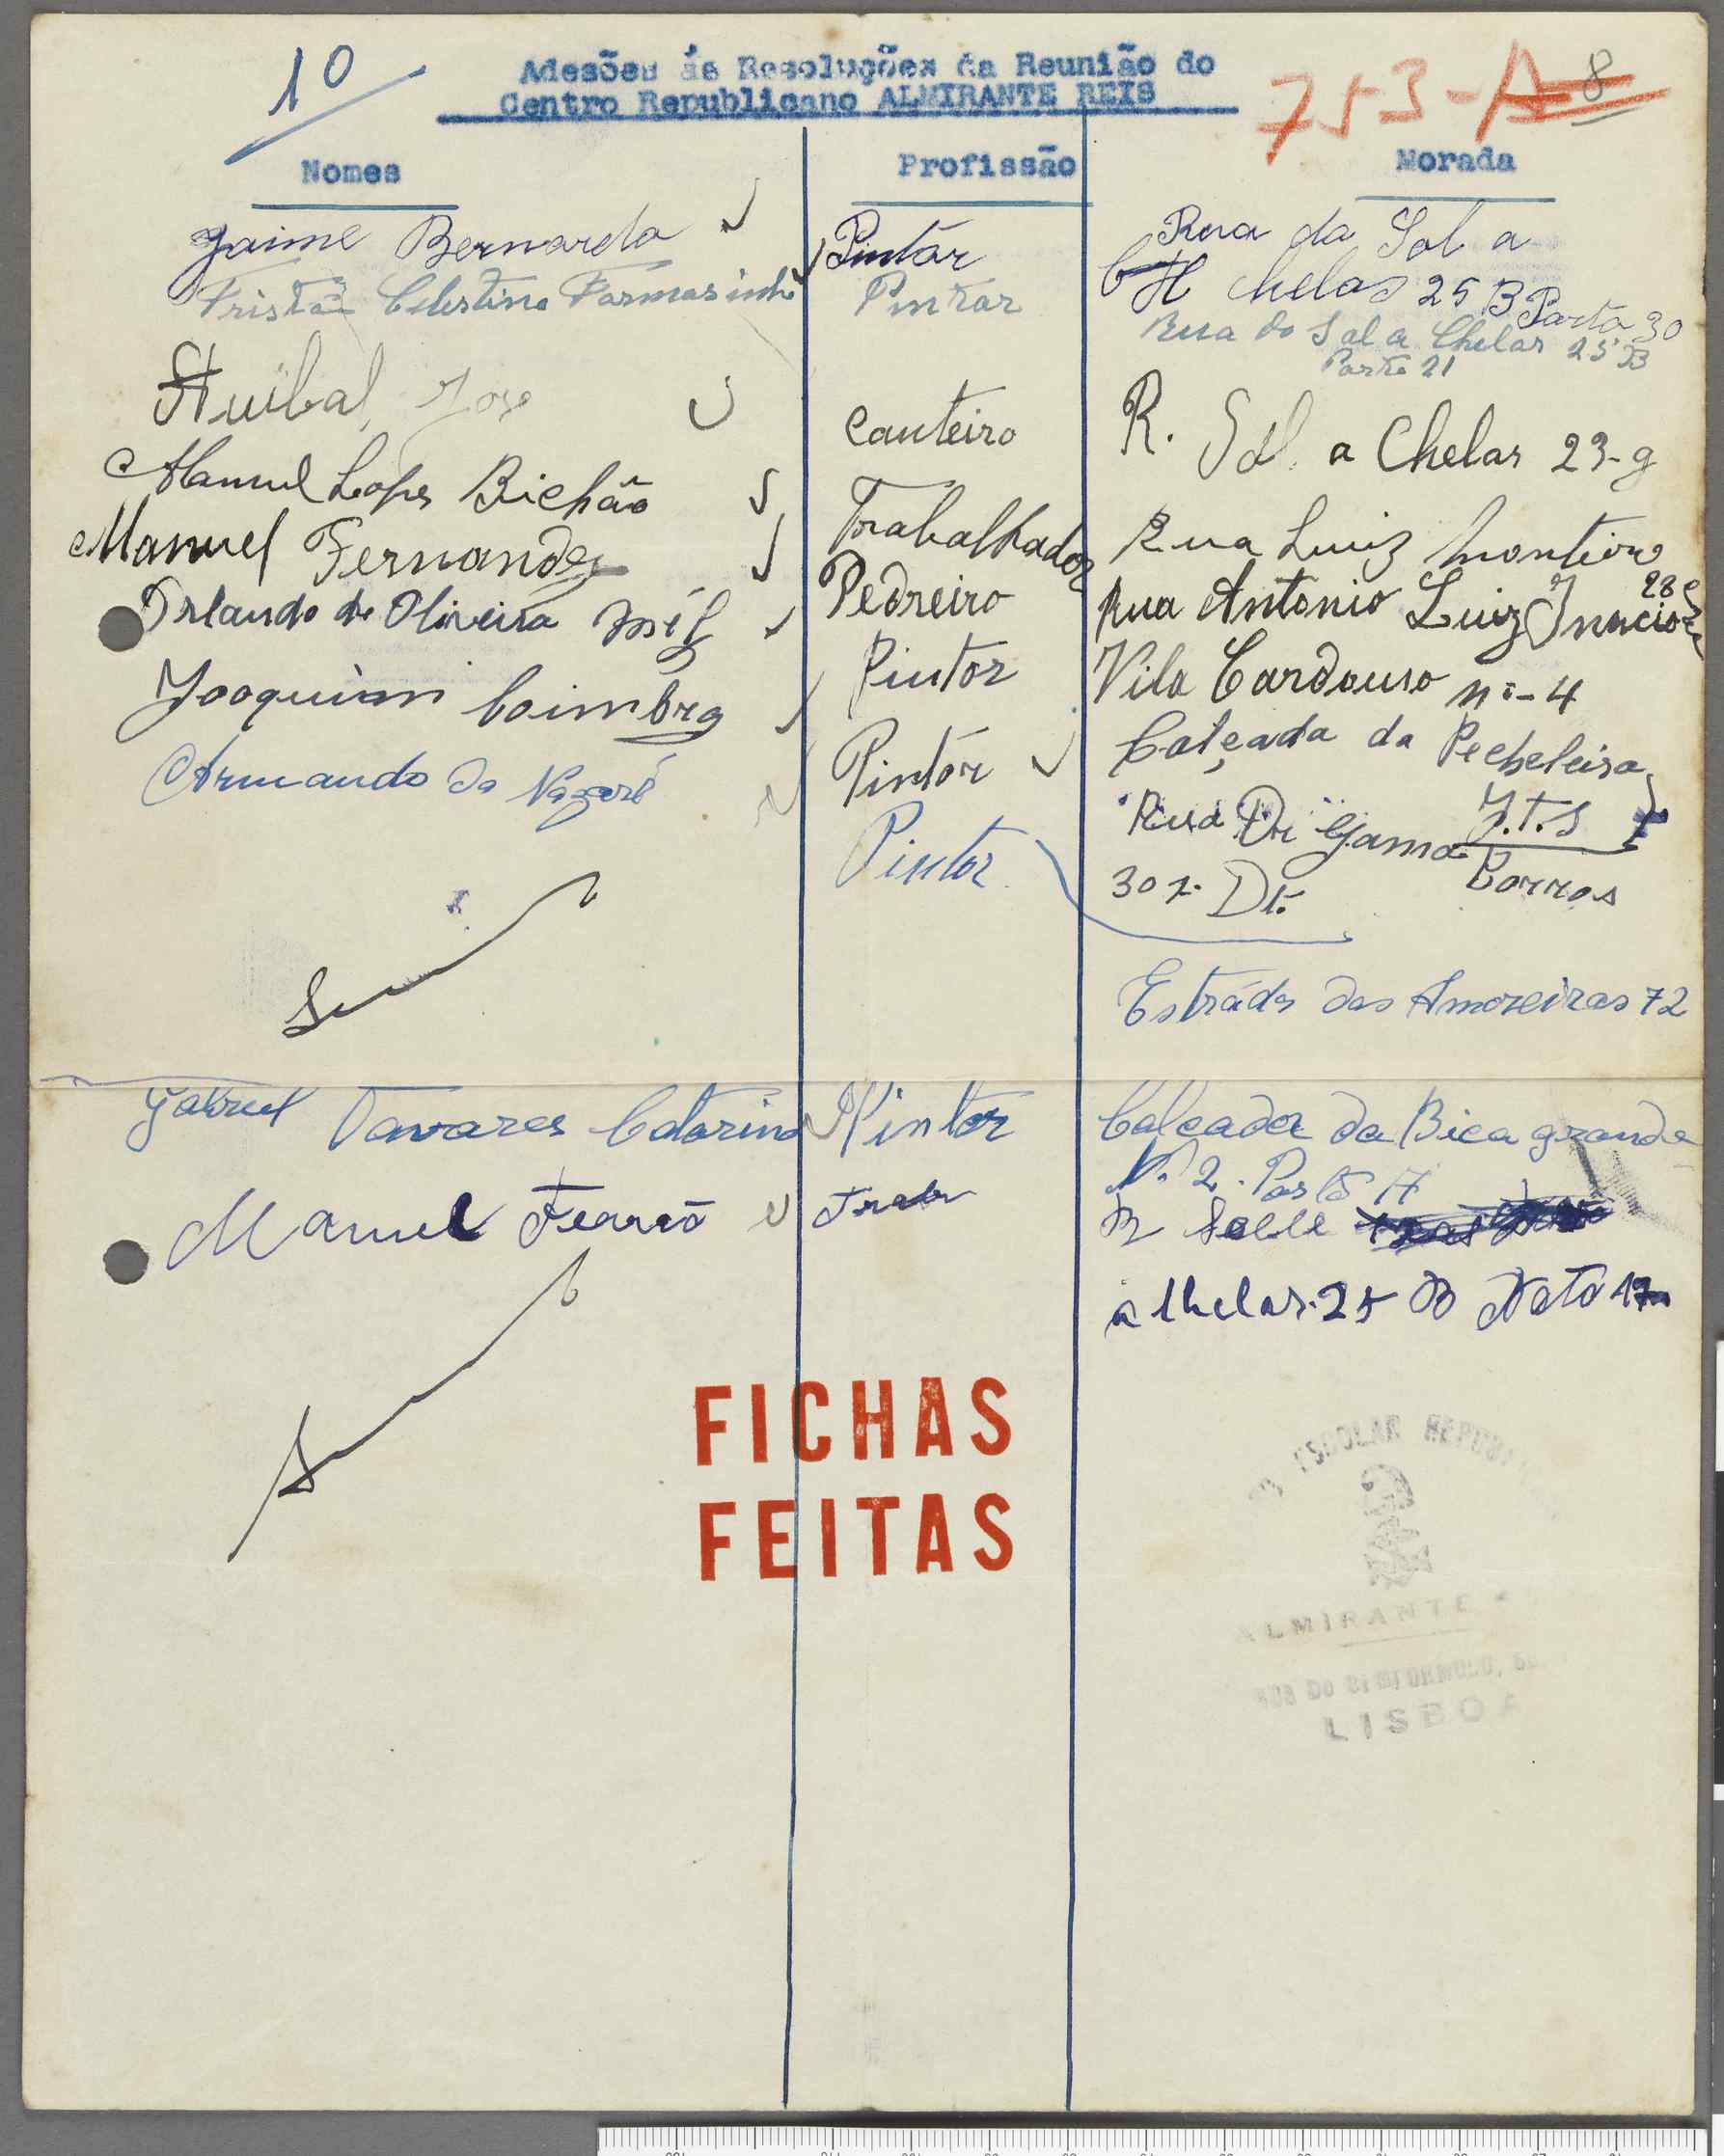 10
Adesões ás Resoluções da Reunião do
Centro Republicano ALMIRANTE REIS
753-A 8
Nomes Profissão Morada
Jaime Bernardo Pintôr Rua da Sol a
Chelas 25 B Porta 30
Tristão Celestino Farmasinho Pintor Rua do Sal a Chelas 25 B
Porta 21
Aníbal José Canteiro R. Sol a Chelas 23-g
Manuel Lopes Bichão Trabalhador Rua Luiz Monteiro
Manuel Fernandes Pedreiro Rua Antonio Luiz Inacio 28
Orlando de Oliveira Pintor Vila Cardouso nº-4
Joaquim Coimbra Pintôr Calçada da Picheleira
J.T.S
Rua Dr Gama Barros
30 Dt.
Armando da Nazaré Pintor Estráda das Amoreiras 72
Gabriel Tavares Catarino Pintor Calcada da Bica grande
N. 2. Porta 17
Manuel Trab R
a Chelas 25 B 17
FICHAS
FEITAS
ESCOLAR REPUB
ALMIRANTE
LISBOA